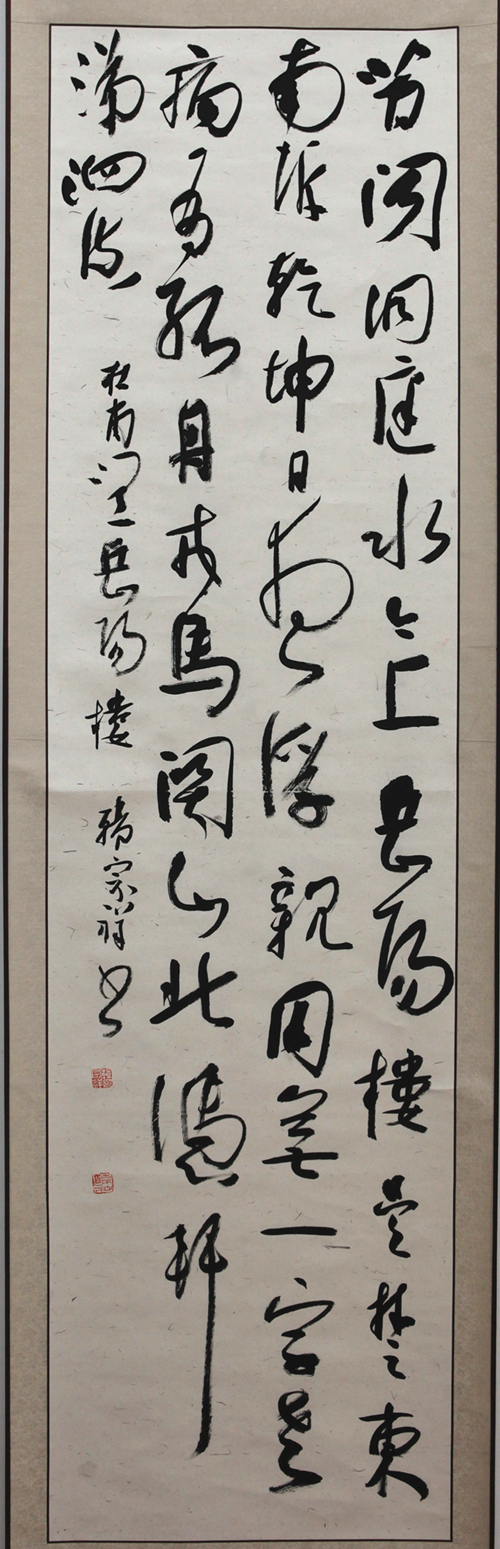 昔闻洞庭水今上岳阳楼吴楚東
南坼乾坤日夜浮親朋無一字老
病有孤舟戎馬関山北憑軒
涕泗流
杜甫登岳阳楼 韓宗祥书